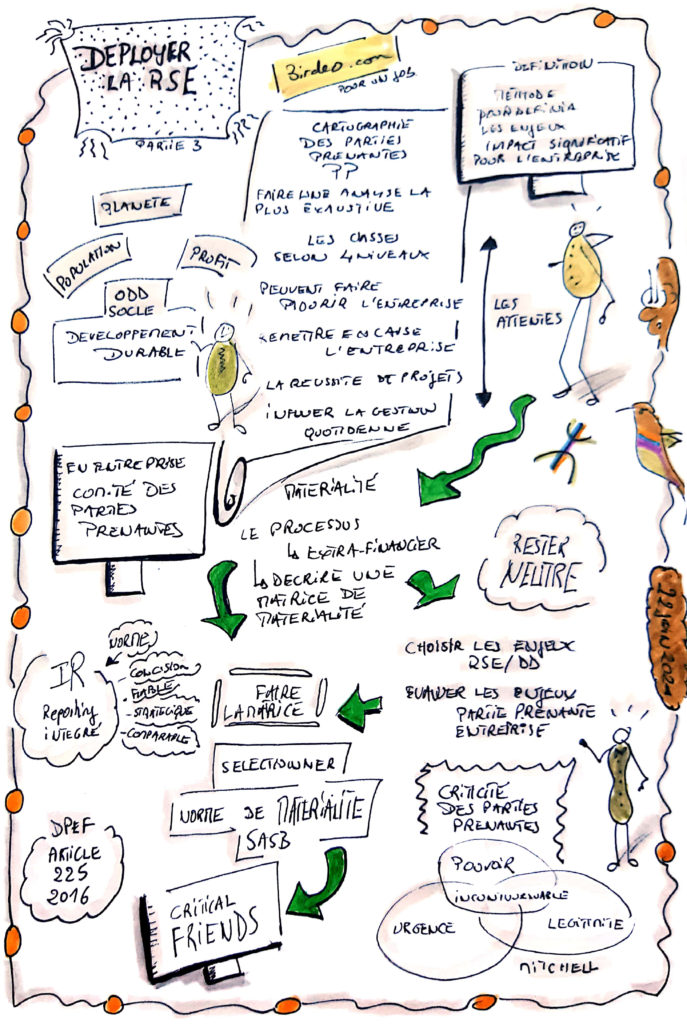 DEPLOYER
LA RSE
PARTIE 3
Birdeo.com
POUR UN JOB
DEFINITION
METHODE
POUR DEFINIR
LES ENJEUX
IMPACT SIGNIFICATIF
POUR L'ENTREPRISE
CARTOGRAPHIE
DES PARTIES
PRENANTES
PP
FAIRE UNE ANALYSE LA
PLUS EXAUSTIVE
LES CLASSES
SELON 4 NIVEAUX
PEUVENT FAIRE
MOURIR L'ENTREPRISE
REMETTRE EN CAUSE
L'ENTREPRISE
LA REUSSITE DE PROJETS
INFLUER LA GESTION
QUOTIDIENNE
PLANETE
POPULATION
PROFIT
ODD
SOCLE
DEVELOPPEMENT
DURABLE
LES
ATTENTES
EN ENTREPRISE
COMITÉ DES
PARTIES
PRENANTES
MATERIALITÉ
LE PROCESSUS
↳ EXTRA-FINANCIER
↳ DECRIRE UNE
MATRICE DE
MATERIALITÉ
RESTER
NEUTRE
22 JUIN 2024
CHOISIR LES ENJEUX
RSE/DD
EVALUER LES ENJEUX
PARTIE PRENANTE
ENTREPRISE
NORME
IR
Reporting
INTEGRÉ
-CONCISION
-FIABLE
-STRATEGIQUE
-COMPARABLE
FAIRE
LA MATRICE
SELECTIONNER
NORME DE MATERIALITÉ
SASB
CRITICITÉ
DES PARTIES
PRENANTES
DPEF
ARTICLE
225
2016
CRITICAL
FRIENDS
POUVOIR
INCONTOURNABLE
URGENCE
LEGITIMITE
MITCHELL